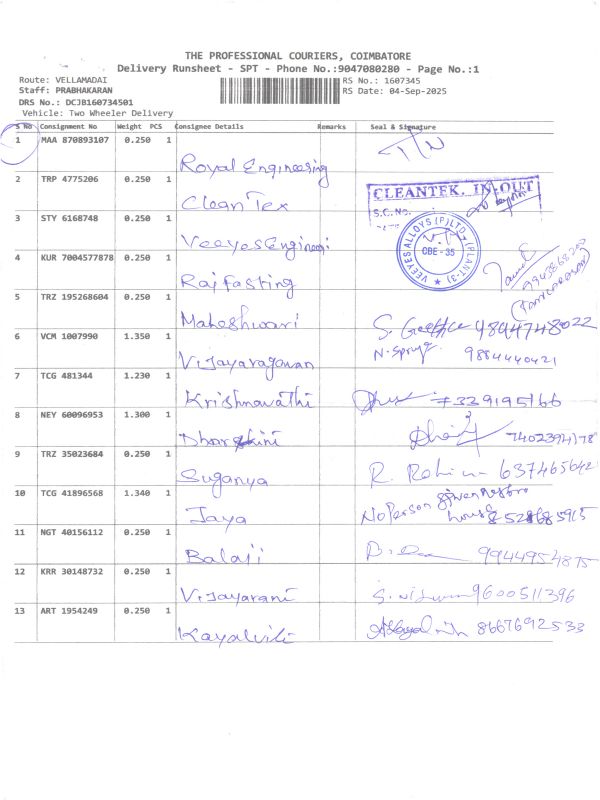 THE PROFESSIONAL COURIERS, COIMBATORE
Delivery Runsheet - SPT - Phone No.:9047080280 - Page No.:1
Route: VELLAMADAI RS No.: 1607345
Staff: PRABHAKARAN RS Date: 04-Sep-2025
DRS No.: DCJB160734501
Vehicle: Two Wheeler Delivery
S No Consignment No Weight PCS Consignee Details Remarks Seal & Signature
1 MAA 870893107 0.250 1 Royal Engineering
2 TRP 4775206 0.250 1 CleanTex CLEANTEK. IN/OUT
S.C.No.
3 STY 6168748 0.250 1 Veeyes Engineeri VEEYES ALLOYS (P) LTD (PLANT-3) CBE - 35
4 KUR 7004577878 0.250 1 Raj fasting
5 TRZ 195268604 0.250 1 Maheshwari
6 VCM 1007990 1.350 1 Vijayaragavan 9884440421
7 TCG 481344 1.230 1 Krishnavathi
8 NEY 60096953 1.300 1
9 TRZ 35023684 0.250 1 Suganya
10 TCG 41896568 1.340 1 Jaya No Person
11 NGT 40156112 0.250 1 Balaji 9944954875
12 KRR 30148732 0.250 1 Vijayarani 9600511396
13 ART 1954249 0.250 1 Kayalvili 8667692533